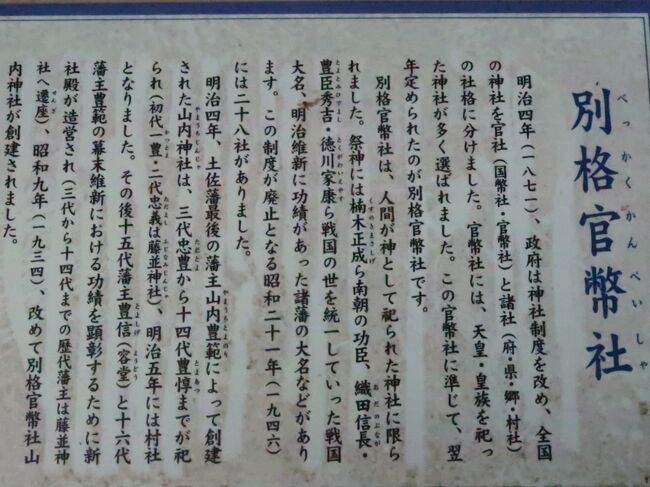 別格官幣社
べっかくかんぺいしゃ
明治四年（一八七一）、政府は神社制度を改め、全国
の神社を官社（国幣社・官幣社）と諸社（府・県・郷・村社）
の社格に分けました。官幣社には、天皇・皇族を祀っ
た神社が多く選ばれました。この官幣社に準じて、翌
年定められたのが別格官幣社です。
別格官幣社は、人間が神として祀られた神社に限ら
れました。祭神には楠木正成ら南朝の功臣、織田信長・
豊臣秀吉・徳川家康ら戦国の世を統一していった戦国
大名、明治維新に功績があった諸藩の大名などがあり
ます。この制度が廃止となる昭和二十一年（一九四六）
には二十八社がありました。
明治四年、土佐藩最後の藩主山内豊範によって創建
された山内神社は、三代忠豊から十四代豊惇までが祀
られ（初代一豊・二代忠義は藤並神社）、明治五年には村社
となりました。その後十五代藩主豊信（容堂）と十六代
藩主豊範の幕末維新における功績を顕彰するために新
社殿が造営され（三代から十四代までの歴代藩主は藤並神
社へ遷座）、昭和九年（一九三四）、改めて別格官幣社山
内神社が創建されました。